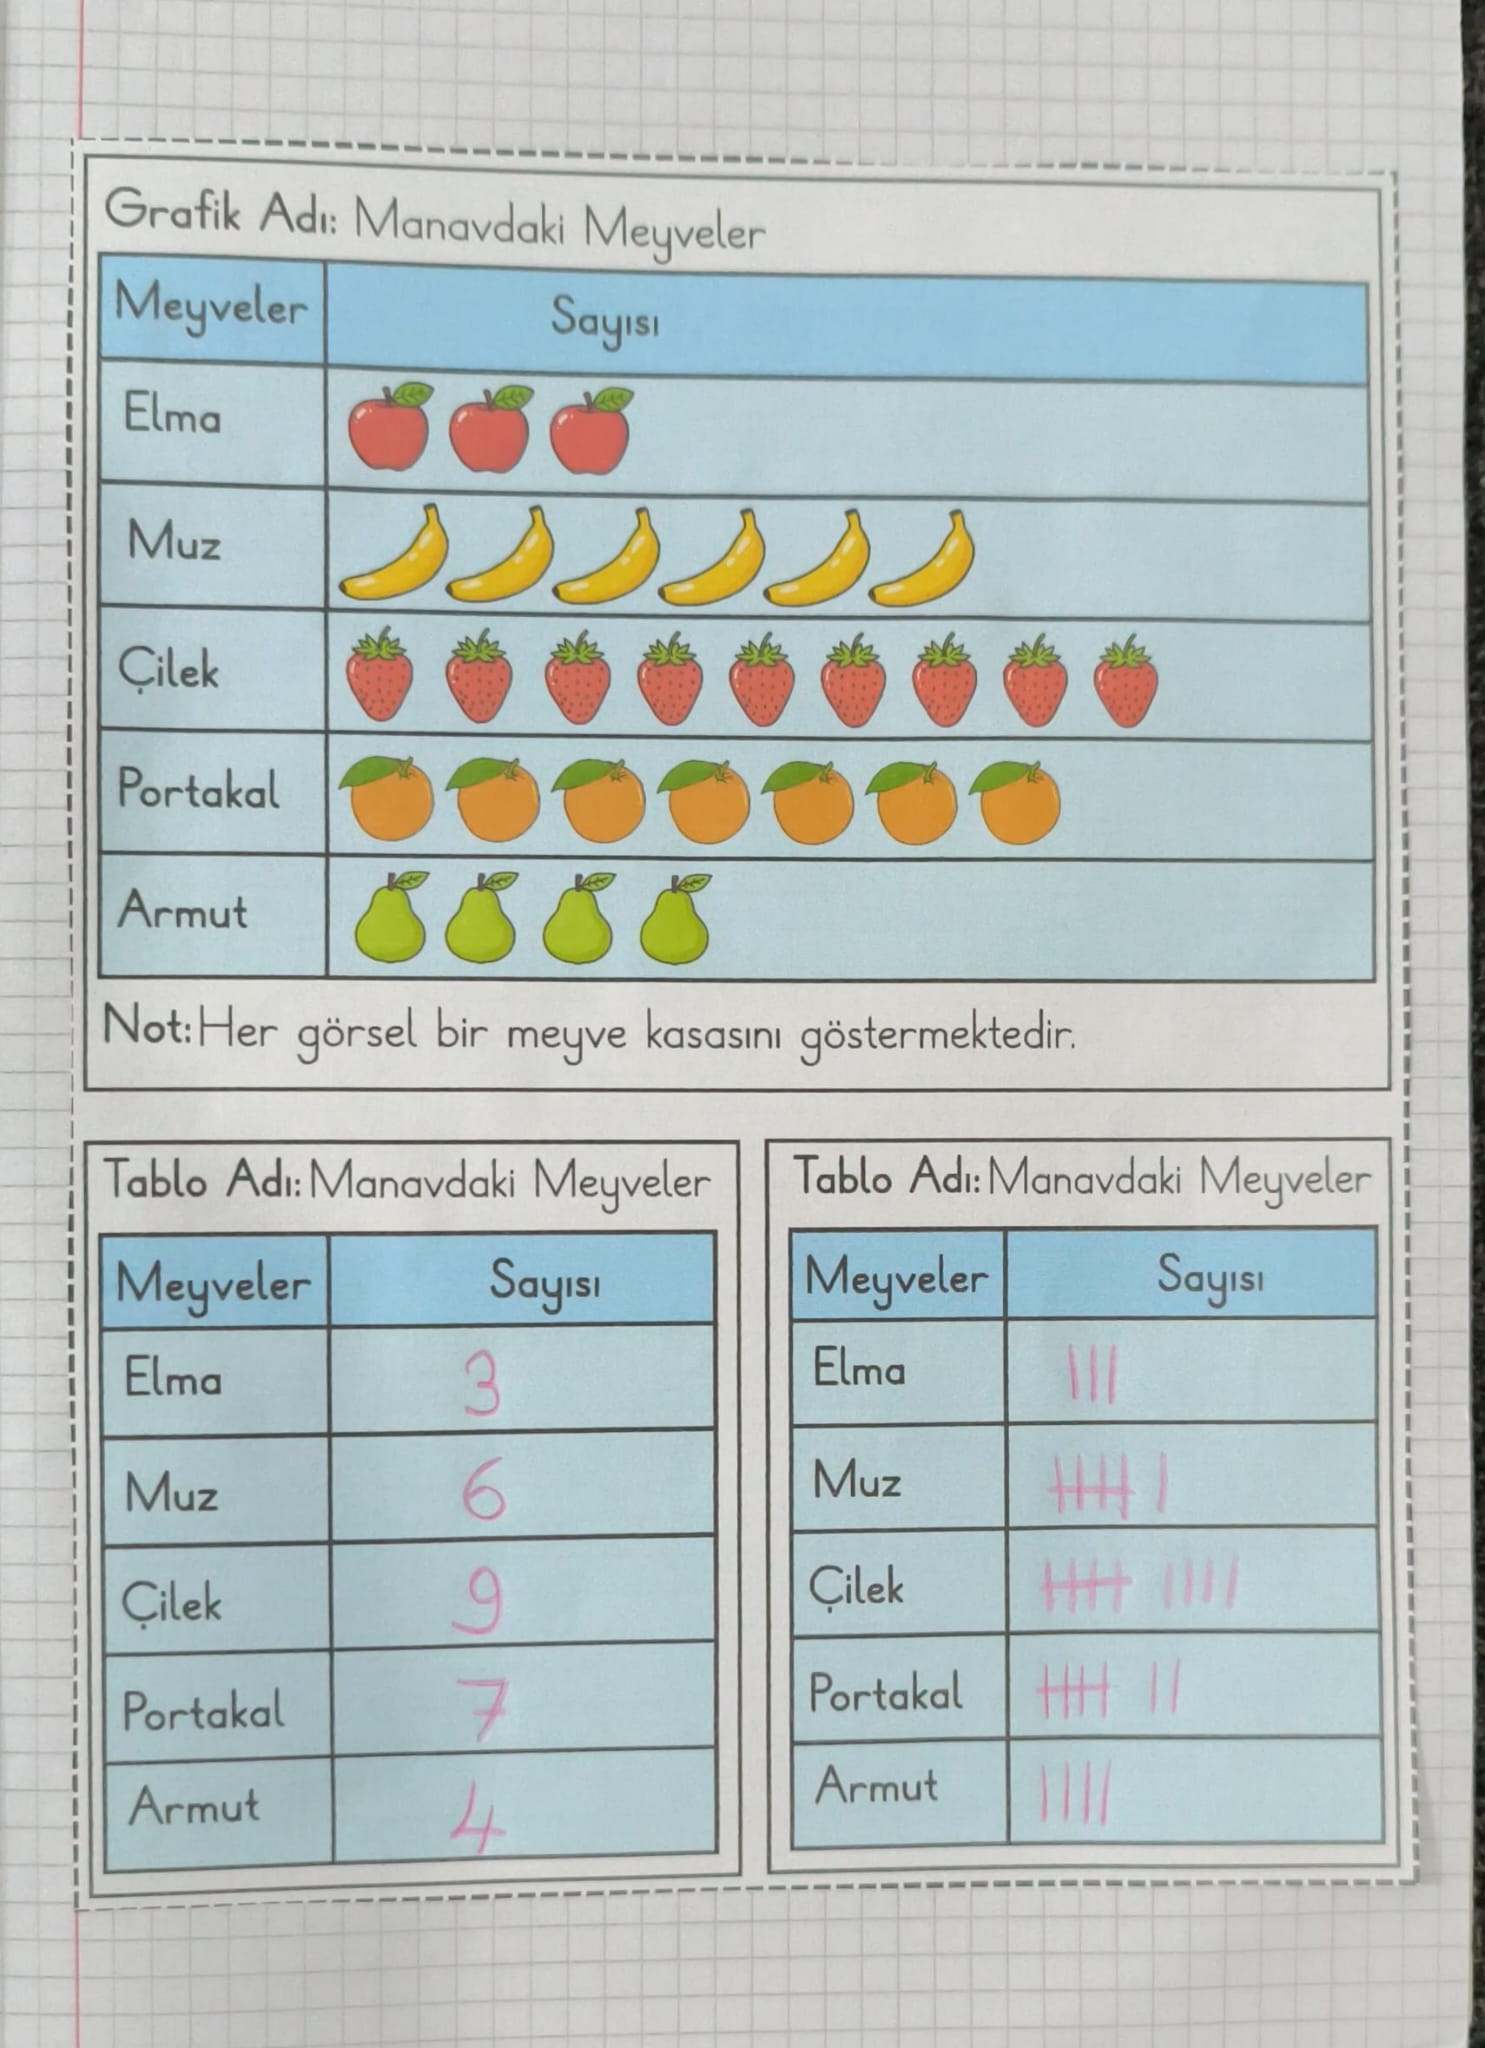 Grafik Adı: Manavdaki Meyveler
Meyveler Sayısı
Elma
Muz
Çilek
Portakal
Armut
Not: Her görsel bir meyve kasasını göstermektedir.
Tablo Adı: Manavdaki Meyveler
Meyveler Sayısı
Elma 3
Muz 6
Çilek 9
Portakal 7
Armut 4
Tablo Adı: Manavdaki Meyveler
Meyveler Sayısı
Elma
Muz
Çilek
Portakal
Armut